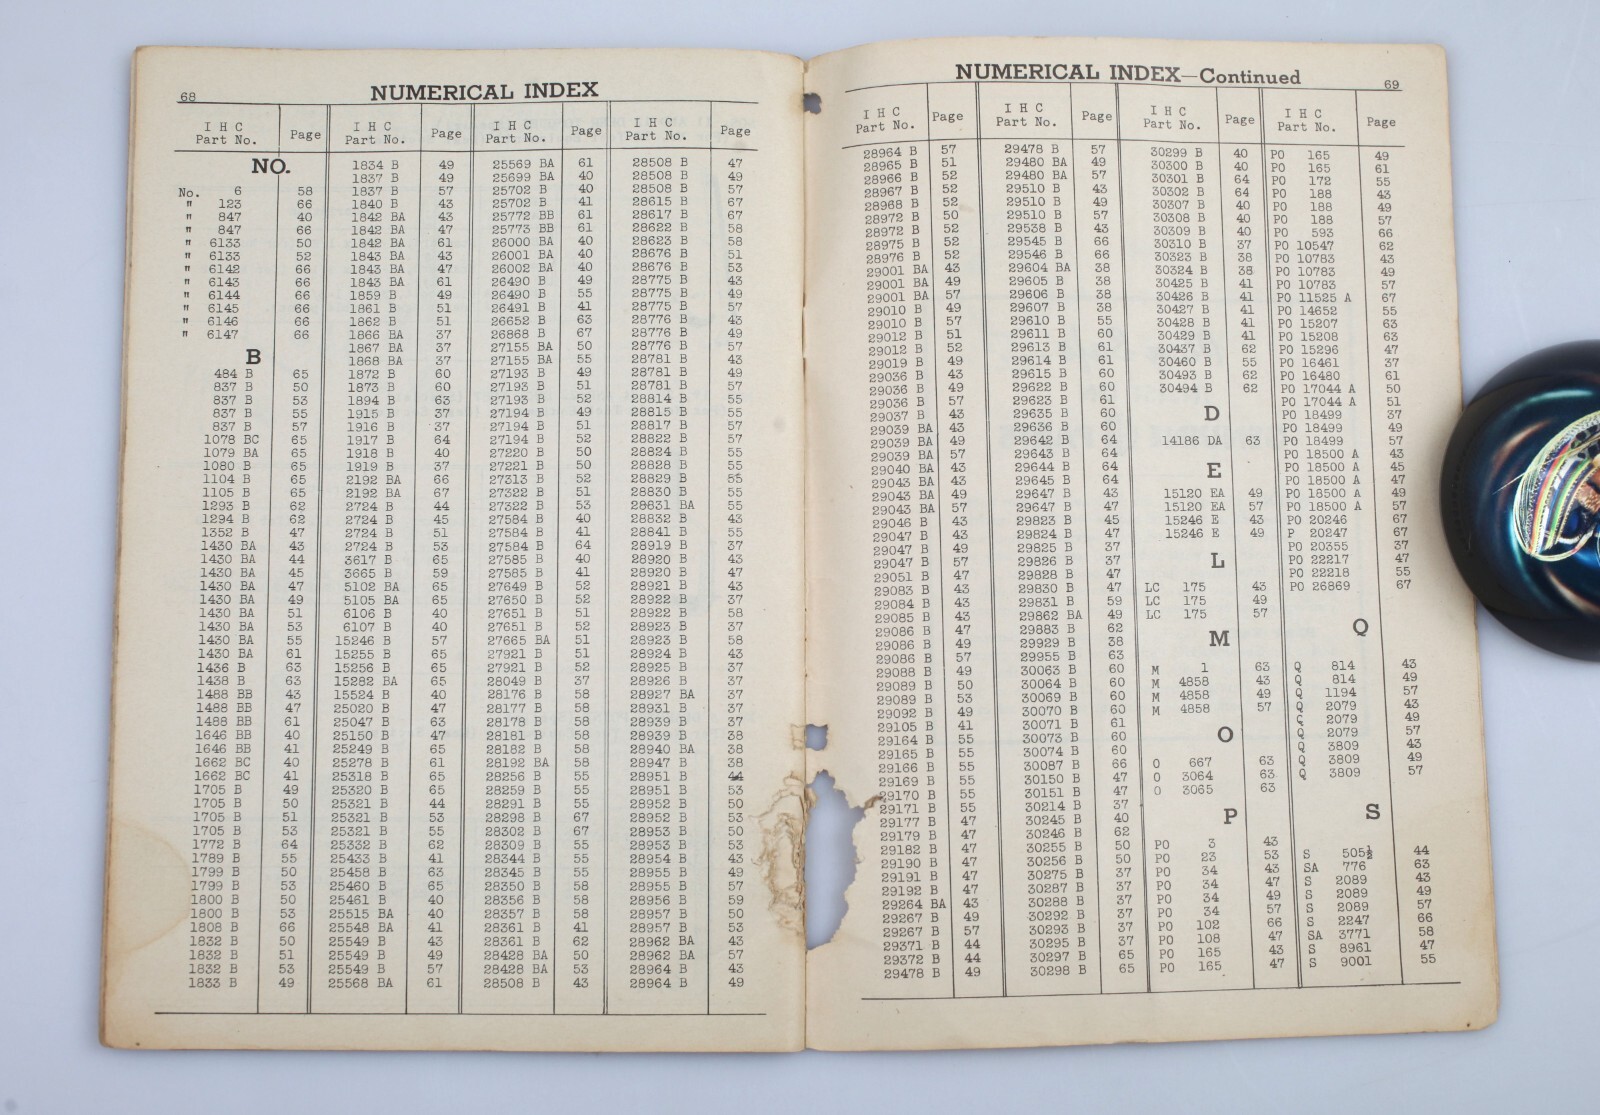 68
NUMERICAL INDEX
I H C Part No. Page
NO.
No. 6 58
" 123 66
" 847 40
" 847 66
" 6133 50
" 6133 52
" 6142 66
" 6143 66
" 6144 66
" 6145 66
" 6146 66
" 6147 66
B
484 B 65
837 B 50
837 B 53
837 B 55
837 B 57
1078 BC 65
1079 BA 65
1080 B 65
1104 B 65
1105 B 65
1293 B 62
1294 B 62
1352 B 47
1430 BA 43
1430 BA 44
1430 BA 45
1430 BA 47
1430 BA 49
1430 BA 51
1430 BA 53
1430 BA 55
1430 BA 61
1436 B 63
1438 B 63
1488 BB 43
1488 BB 47
1488 BB 61
1646 BB 40
1646 BB 41
1662 BC 40
1662 BC 41
1705 B 49
1705 B 50
1705 B 51
1705 B 53
1772 B 64
1789 B 55
1799 B 50
1799 B 53
1800 B 50
1800 B 53
1808 B 66
1832 B 50
1832 B 51
1832 B 53
1833 B 49
I H C Part No. Page
1834 B 49
1837 B 49
1837 B 57
1840 B 43
1842 BA 43
1842 BA 47
1842 BA 61
1843 BA 43
1843 BA 47
1843 BA 61
1859 B 49
1861 B 51
1862 B 51
1866 BA 37
1867 BA 37
1868 BA 37
1872 B 60
1873 B 60
1894 B 63
1915 B 37
1916 B 37
1917 B 64
1918 B 40
1919 B 37
2192 BA 66
2192 BA 67
2724 B 44
2724 B 45
2724 B 51
2724 B 53
3617 B 65
3665 B 59
5102 BA 65
5105 BA 65
6106 B 40
6107 B 40
15246 B 57
15255 B 65
15256 B 65
15282 BA 65
15524 B 40
25020 B 47
25047 B 63
25150 B 47
25249 B 65
25278 B 61
25318 B 65
25320 B 65
25321 B 44
25321 B 53
25321 B 55
25332 B 62
25433 B 41
25458 B 63
25460 B 65
25461 B 40
25515 BA 40
25548 BA 41
25549 B 43
25549 B 49
25549 B 57
25568 BA 61
I H C Part No. Page
25569 BA 61
25699 BA 40
25702 B 40
25702 B 41
25772 BB 61
25773 BB 61
26000 BA 40
26001 BA 40
26002 BA 40
26490 B 49
26490 B 55
26491 B 41
26652 B 63
26868 B 67
27155 BA 50
27155 BA 55
27193 B 49
27193 B 51
27193 B 52
27194 B 49
27194 B 51
27194 B 52
27220 B 50
27221 B 50
27313 B 52
27322 B 51
27322 B 53
27584 B 40
27584 B 41
27584 B 64
27585 B 40
27585 B 41
27649 B 52
27650 B 52
27651 B 51
27651 B 52
27665 BA 51
27921 B 51
27921 B 52
28049 B 37
28176 B 58
28177 B 58
28178 B 58
28181 B 58
28182 B 58
28192 BA 58
28256 B 55
28259 B 55
28291 B 55
28298 B 67
28302 B 67
28309 B 55
28344 B 55
28345 B 55
28350 B 58
28356 B 58
28357 B 58
28361 B 41
28361 B 62
28428 BA 50
28428 BA 53
28508 B 43
I H C Part No. Page
28508 B 47
28508 B 49
28508 B 57
28615 B 67
28617 B 67
28622 B 58
28623 B 58
28676 B 51
28676 B 53
28775 B 43
28775 B 49
28775 B 57
28776 B 43
28776 B 49
28776 B 57
28781 B 43
28781 B 49
28781 B 57
28814 B 55
28815 B 55
28817 B 57
28822 B 57
28824 B 55
28828 B 55
28829 B 55
28830 B 55
28631 BA 55
28832 B 43
28841 B 55
28919 B 37
28920 B 43
28920 B 47
28921 B 43
28922 B 37
28922 B 58
28923 B 37
28923 B 58
28924 B 43
28925 B 37
28926 B 37
28927 BA 37
28931 B 37
28939 B 37
28939 B 38
28940 BA 38
28947 B 38
28951 B 44
28951 B 53
28952 B 50
28952 B 53
28953 B 50
28953 B 53
28954 B 43
28955 B 49
28955 B 57
28956 B 59
28957 B 50
28957 B 53
28962 BA 43
28962 BA 57
28964 B 43
28964 B 49
NUMERICAL INDEX—Continued
69
I H C Part No. Page
28964 B 57
28965 B 51
28966 B 52
28967 B 52
28968 B 52
28972 B 50
28972 B 52
28975 B 52
28976 B 52
29001 BA 43
29001 BA 49
29001 BA 57
29010 B 49
29010 B 57
29012 B 51
29012 B 52
29019 B 49
29036 B 43
29036 B 49
29036 B 57
29037 B 43
29039 BA 43
29039 BA 49
29039 BA 57
29040 BA 43
29043 BA 43
29043 BA 49
29043 BA 57
29046 B 43
29047 B 43
29047 B 49
29047 B 57
29051 B 47
29083 B 43
29084 B 43
29085 B 43
29086 B 47
29086 B 49
29086 B 57
29088 B 49
29089 B 50
29089 B 53
29092 B 49
29105 B 41
29164 B 55
29165 B 55
29166 B 55
29169 B 55
29170 B 55
29171 B 55
29177 B 47
29179 B 47
29182 B 47
29190 B 47
29191 B 47
29192 B 47
29264 BA 43
29267 B 49
29267 B 57
29371 B 44
29372 B 44
29478 B 49
I H C Part No. Page
29478 B 57
29480 BA 49
29480 BA 57
29510 B 43
29510 B 49
29510 B 57
29538 B 43
29545 B 66
29546 B 66
29604 BA 38
29605 B 38
29606 B 38
29607 B 38
29610 B 55
29611 B 60
29613 B 61
29614 B 61
29615 B 60
29622 B 60
29623 B 61
29635 B 60
29636 B 60
29642 B 64
29643 B 64
29644 B 64
29645 B 64
29647 B 43
29647 B 47
29823 B 45
29824 B 47
29825 B 37
29826 B 37
29828 B 47
29830 B 47
29831 B 59
29862 BA 49
29883 B 62
29929 B 38
29955 B 63
30063 B 60
30064 B 60
30069 B 60
30070 B 60
30071 B 61
30073 B 60
30074 B 60
30087 B 66
30150 B 47
30151 B 47
30214 B 37
30245 B 40
30246 B 62
30255 B 50
30256 B 50
30275 B 37
30287 B 37
30288 B 37
30292 B 37
30293 B 37
30295 B 37
30297 B 65
30298 B 65
I H C Part No. Page
30299 B 40
30300 B 40
30301 B 64
30302 B 64
30307 B 40
30308 B 40
30309 B 40
30310 B 37
30323 B 38
30324 B 38
30425 B 41
30426 B 41
30427 B 41
30428 B 41
30429 B 41
30437 B 62
30460 B 55
30493 B 62
30494 B 62
D
14186 DA 63
E
15120 EA 49
15120 EA 57
15246 E 43
15246 E 49
L
LC 175 43
LC 175 49
LC 175 57
M
M 1 63
M 4858 43
M 4858 49
M 4858 57
O
O 667 63
O 3064 63
O 3065 63
P
PO 3 43
PO 23 53
PO 34 43
PO 34 47
PO 34 49
PO 34 57
PO 102 66
PO 108 47
PO 165 43
PO 165 47
I H C Part No. Page
PO 165 49
PO 165 61
PO 172 55
PO 188 43
PO 188 49
PO 188 57
PO 593 66
PO 10547 62
PO 10783 43
PO 10783 49
PO 10783 57
PO 11525 A 67
PO 14652 55
PO 15207 63
PO 15208 63
PO 15296 47
PO 16461 37
PO 16480 61
PO 17044 A 50
PO 17044 A 51
PO 18499 37
PO 18499 49
PO 18499 57
PO 18500 A 43
PO 18500 A 45
PO 18500 A 47
PO 18500 A 49
PO 18500 A 57
PO 20246 67
P 20247 67
PO 20355 37
PO 22217 47
PO 22218 55
PO 26869 67
Q
Q 814 43
Q 814 49
Q 1194 57
Q 2079 43
Q 2079 49
Q 2079 57
Q 3809 43
Q 3809 49
Q 3809 57
S
S 505½ 44
SA 776 63
S 2089 43
S 2089 49
S 2089 57
S 2247 66
SA 3771 58
S 8961 47
S 9001 55